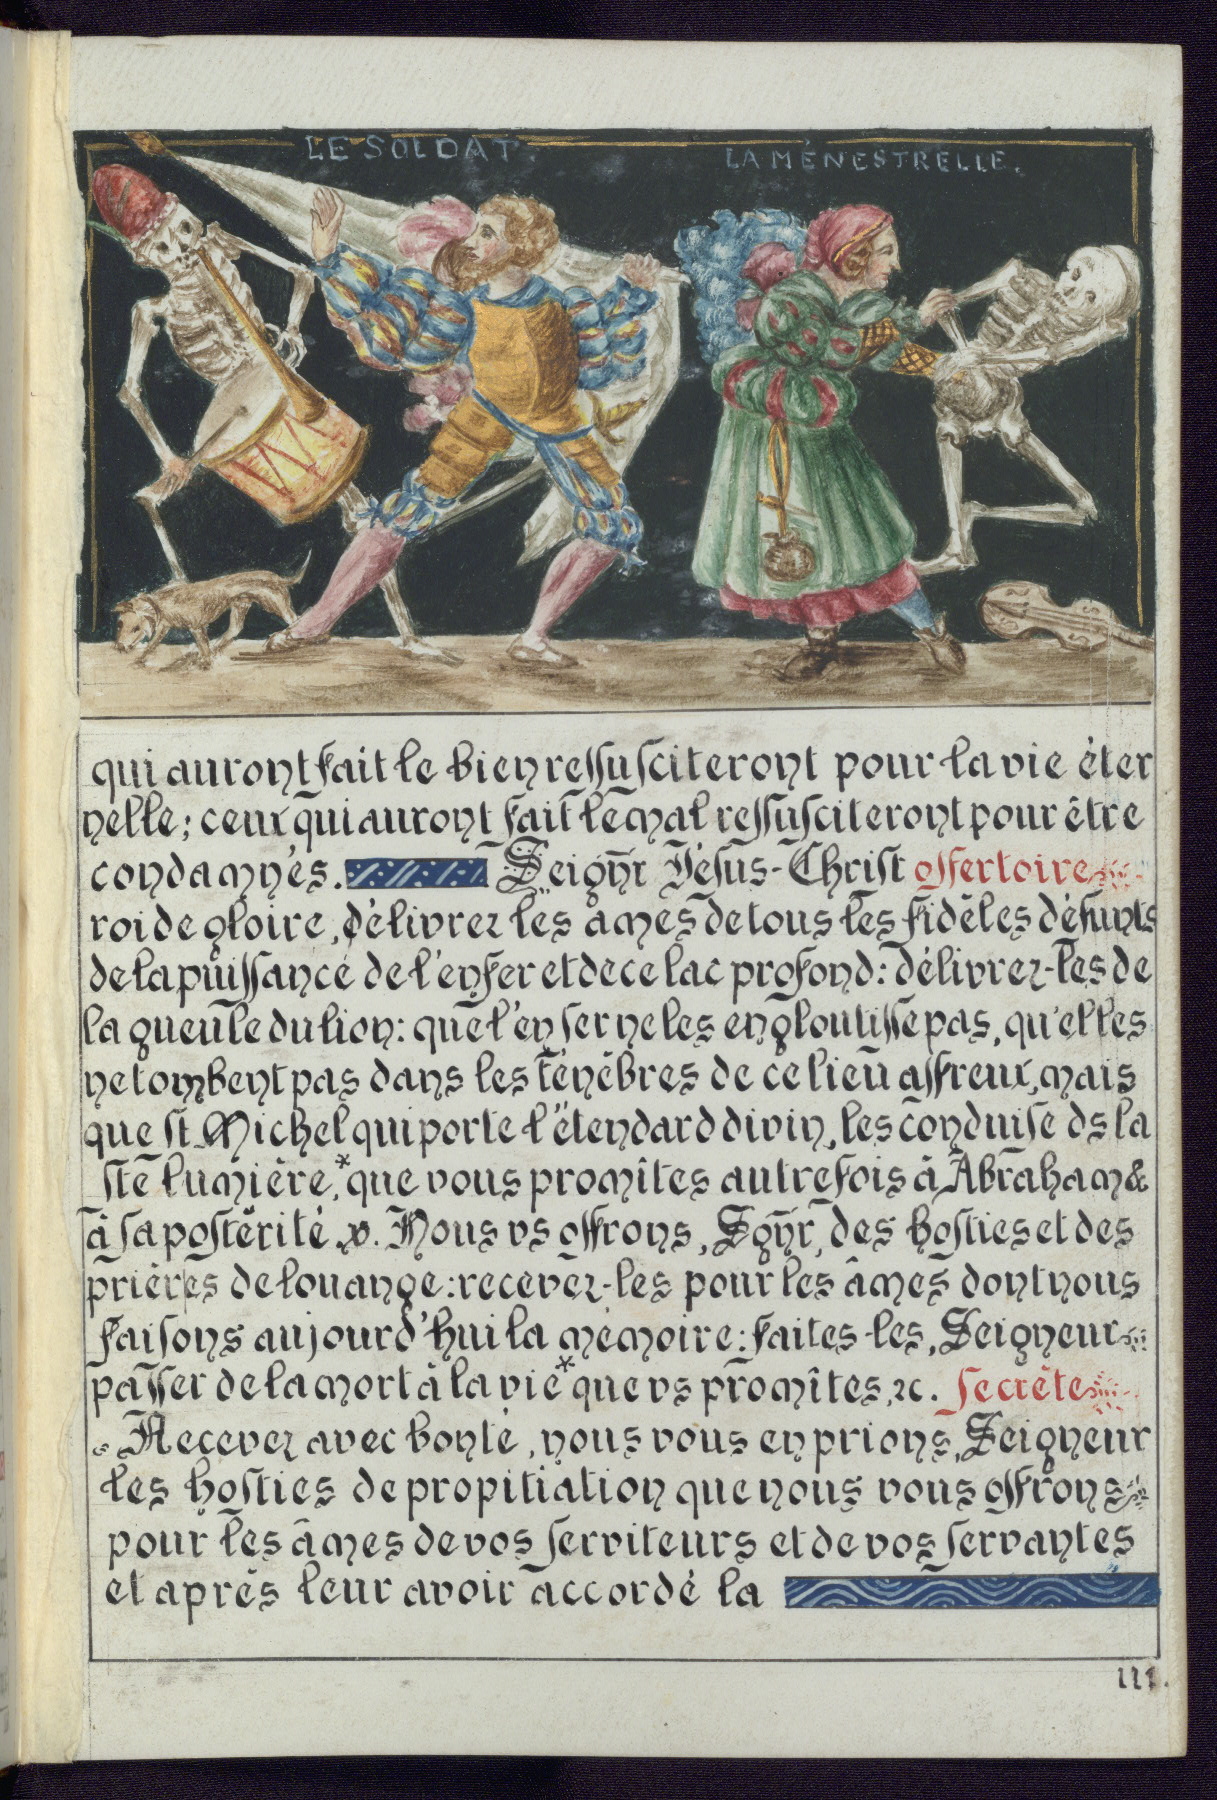 LE SOLDAT.
LA MÉNESTRELLE.
qui auront fait le bien ressusciteront pour la vie éter
nelle; ceux qui auront fait le mal ressusciteront pour être
condamnés. Seignr Jésus-Christ offertoire
roi de gloire, délivrez les âmes de tous les fidèles défunts
de la puissance de l'enfer et de ce lac profond: délivrez-les de
la gueule du lion: que l'enfer ne les engloutisse pas, qu'elles
ne tombent pas dans les ténèbres de ce lieu affreux, mais
que st Michel qui porte l'étendard divin, les conduise ds la
ste lumière,* que vous promîtes autrefois à Abraham &
à sa postérité. v. Nous vs offrons, Sgnr, des hosties et des
prières de louange: recevez-les pour les âmes dont nous
faisons aujourd'hui la mémoire: faites-les, Seigneur
passer de la mort à la vie* que vs promîtes, &c. secrète
Recevez avec bonté, nous vous en prions, Seigneur
les hosties de propitiation que nous vous offrons
pour les âmes de vos serviteurs et de vos servantes
et après leur avoir accordé la
111.